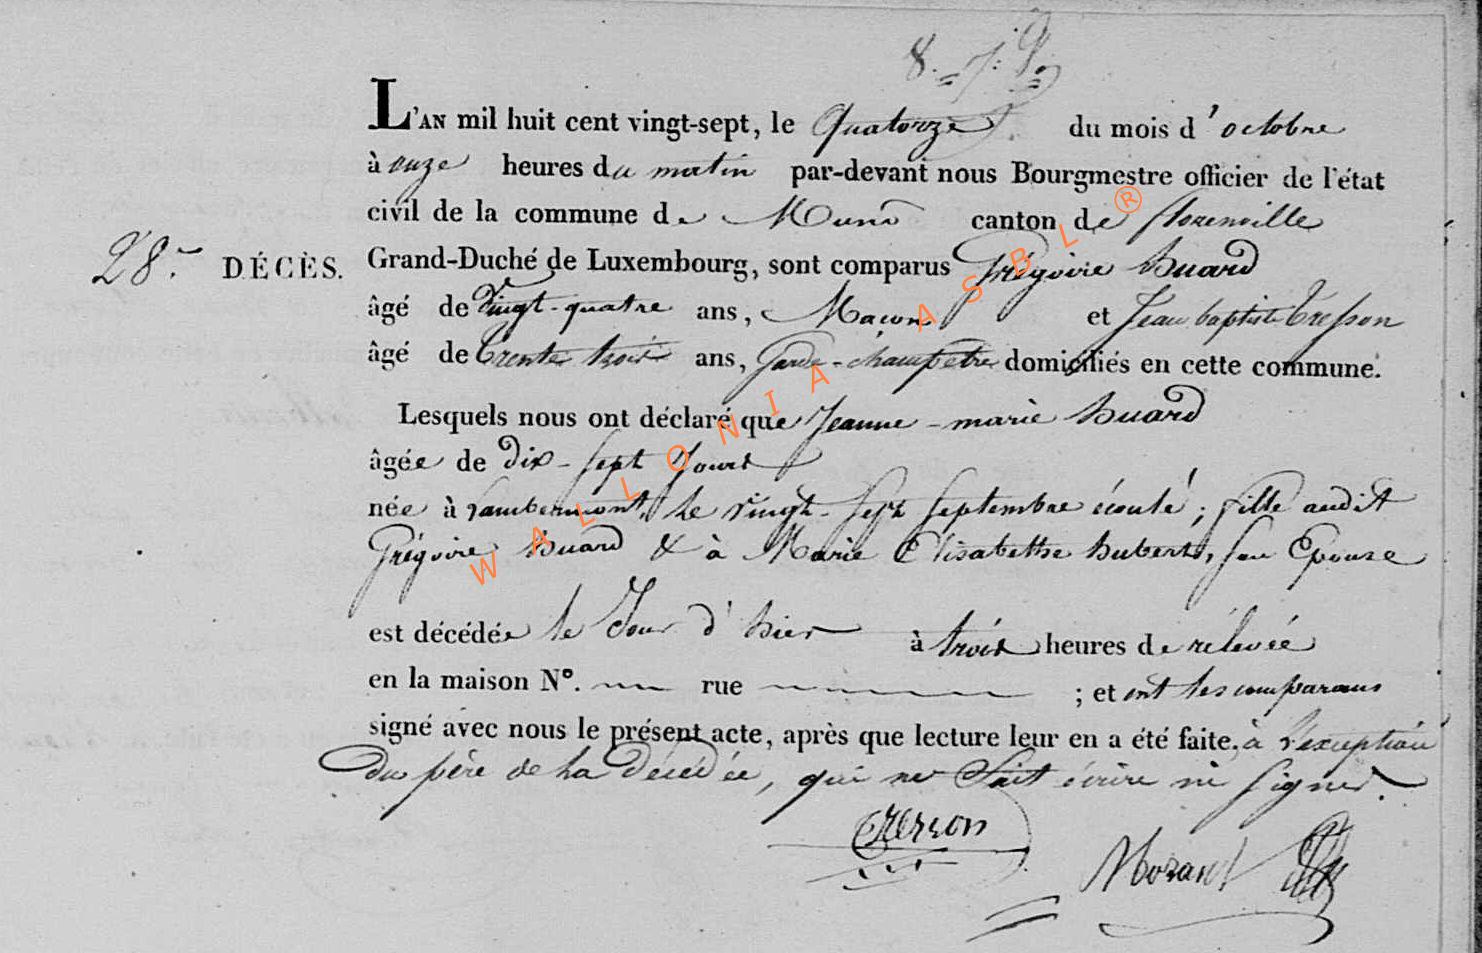 L'AN mil huit cent vingt-sept, le Quatorze du mois d'octobre
à onze heures du matin par-devant nous Bourgmestre officier de l'état
civil de la commune de Muno canton de florenville
28. DÉCÈS. Grand-Duché de Luxembourg, sont comparus Grégoire Suard
âgé de Vingt-quatre ans, Maçon et Jean baptiste Tresson
âgé de Trente trois ans, Garde-champetre domiciliés en cette commune.
Lesquels nous ont déclaré que Jeanne-marie Suard
âgée de Dix-Sept Jours
née à Lambermont, le vingt-Sept Septembre écoulé; fille audit
Grégoire Suard & à Marie Elisabethe hubert, son Epouse
est décédée le Jour d'hier à trois heures de rélevée
en la maison N°. rue ; et ont les comparans
signé avec nous le présent acte, après que lecture leur en a été faite, à l'exception
du père de la décédée, qui ne Sait écrire ni Signer.
WALLONIA ASBL ®